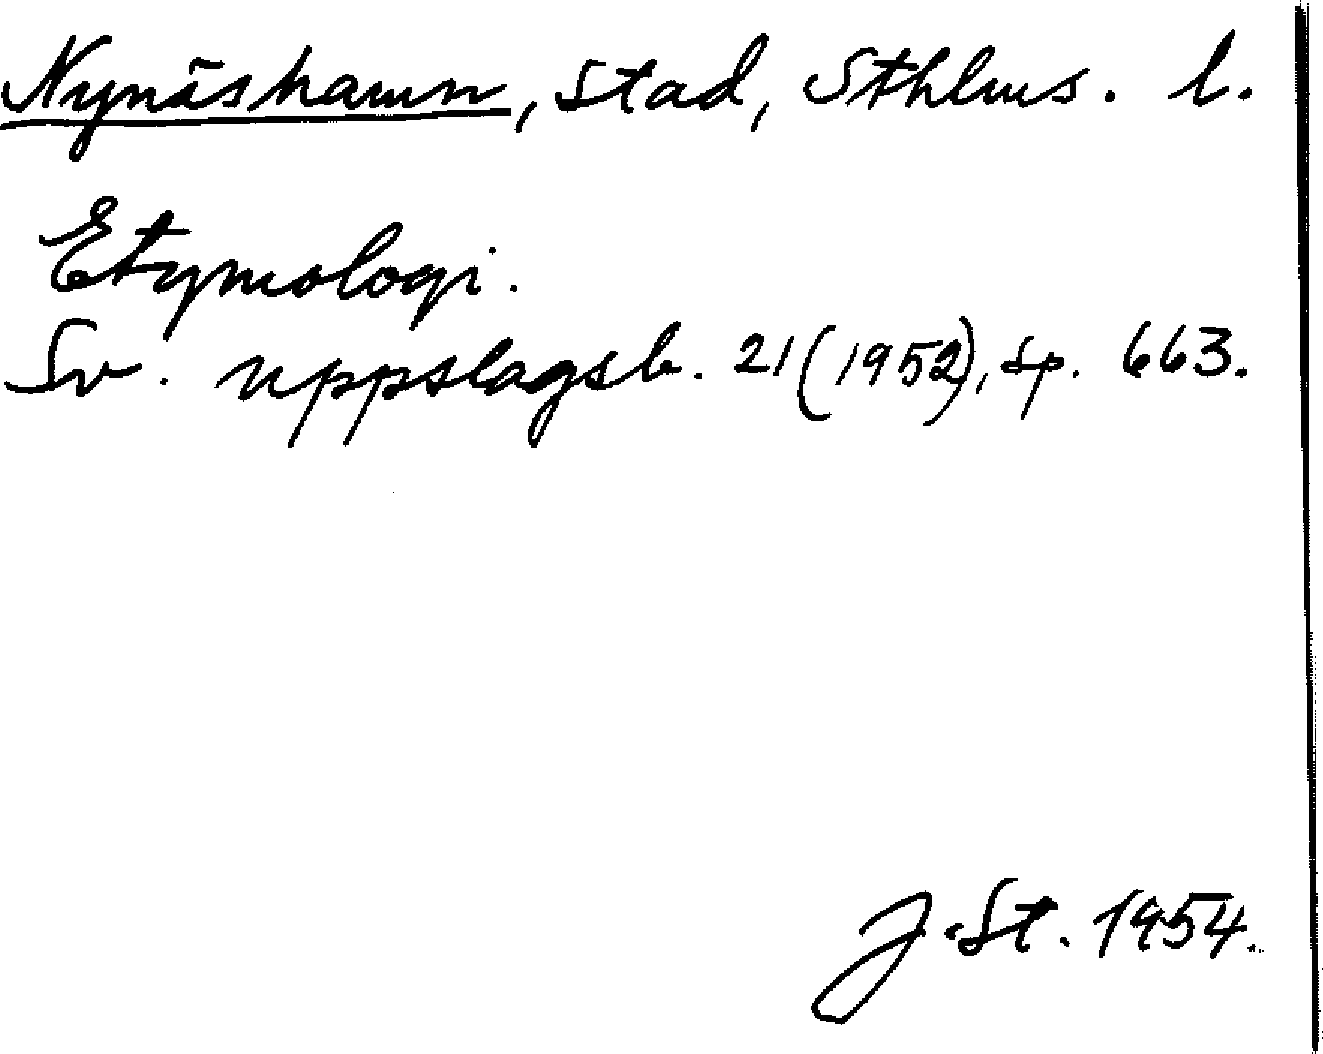 Nynäshamn, stad, Sthlms. l.
Etymologi.
Sv. uppslagsb. 21 (1952), sp. 663.
J. St. 1954.